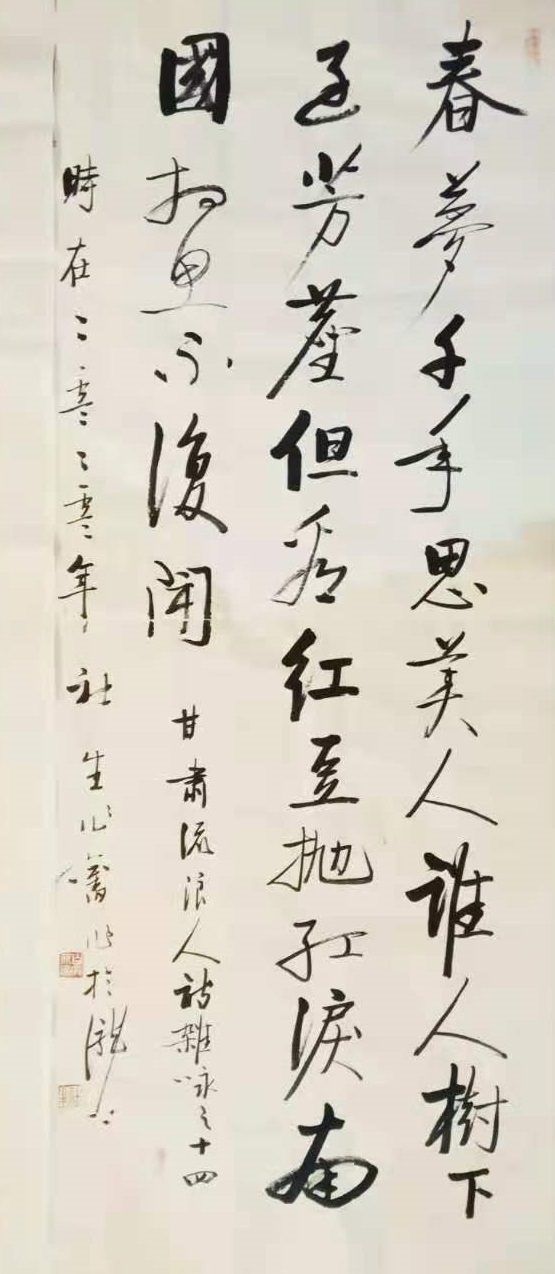 春夢千年思美人誰人樹下
逐芳塵但看紅豆拋紅淚南
國相思不復聞
甘肅流浪人詩雜咏之十四
時在二零二零年社生作舊作於隴